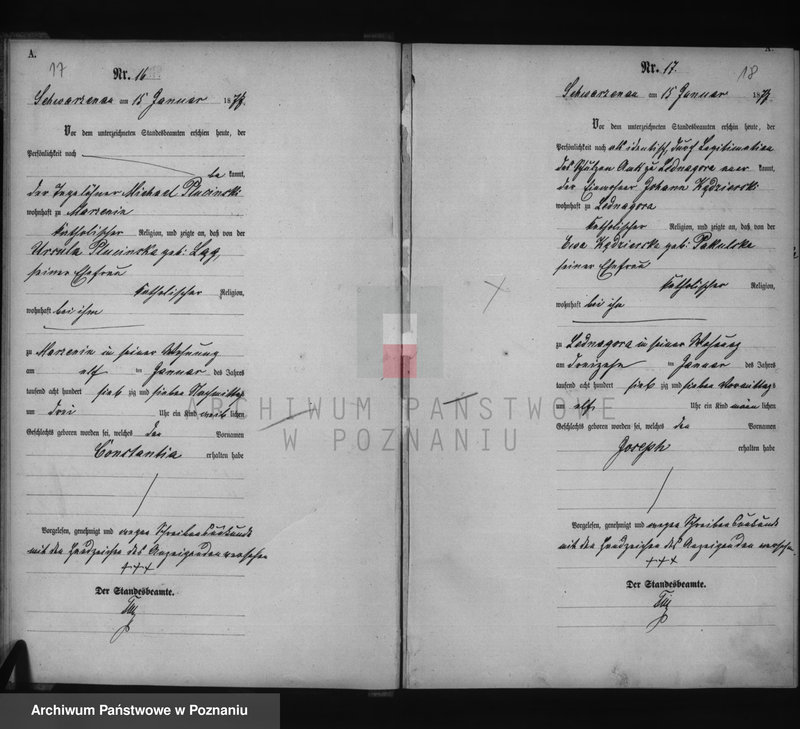 A.
17
Nr. 16
Schwarzenau am 15 Januar 1877
Vor dem unterzeichneten Standesbeamten erschien heute, der
Persönlichkeit nach
be kannt,
der Tagelöhner Michael Plucinski
wohnhaft zu Marzenin
katholischer Religion, und zeigte an, daß von der
Ursula Plucinska geb: Lag,
seiner Ehefrau
katholischer Religion,
wohnhaft bei ihm
zu Marzenin in seiner Wohnung
am elf ten Januar des Jahres
tausend acht hundert sieb zig und sieben Nachmittags
um drei Uhr ein Kind weib lichen
Geschlechts geboren worden sei, welches den Vornamen
Constantia erhalten habe
Vorgelesen, genehmigt und wegen Schreibensunkunde
mit den Handzeichen des Anzeigenden versehen
+++
Der Standesbeamte.
A.
18
Nr. 17.
Schwarzenau am 15 Januar 1877
Vor dem unterzeichneten Standesbeamten erschien heute, der
Persönlichkeit nach als identisch, durch Legitimation
des Schulzen Amt zu Lednagora aner kannt,
der Einwohner Johann Kędzierski
wohnhaft zu Lednagora
katholischer Religion, und zeigte an, daß von der
Ewa Kędzierska geb: Pakulska
seiner Ehefrau
katholischer Religion,
wohnhaft bei ihm
zu Lednagora in seiner Wohnung
am dreizehn ten Januar des Jahres
tausend acht hundert sieb zig und sieben Vormittags
um elf Uhr ein Kind männ lichen
Geschlechts geboren worden sei, welches den Vornamen
Joseph erhalten habe
Vorgelesen, genehmigt und wegen Schreibensunkunde
mit den Handzeichen des Anzeigenden versehen.
+++
Der Standesbeamte.
ARCHIWUM PAŃSTWOWE
W POZNANIU
Archiwum Państwowe w Poznaniu